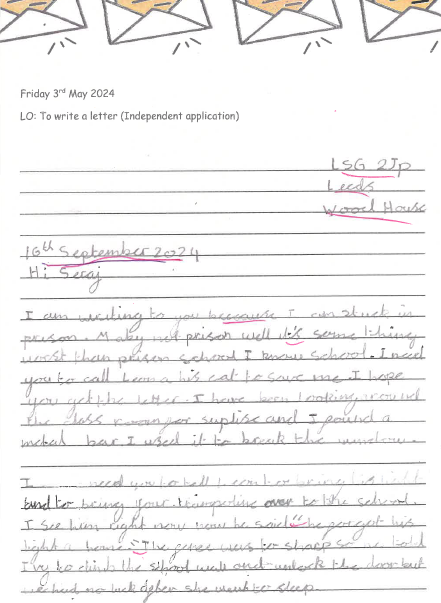 Friday 3rd May 2024
LO: To write a letter (Independent application)
LSG 2Jp
Leeds
Wood House
16th September 2024
Hi Seraj
I am writing to you because I am stuck in
prison. May be not prison well it's some thing
worst than prison school I know school. I need
you to call his cat to save me. I hope
you get the letter. I have been looking around
the class room for suplise and I found a
metal bar. I used it to break the window.
I need you to tell to bring his
and to bring your trampoline over to the school.
I see him right now now he said "he forgot his
light a home" The was to sharp so we told
to climb the school wall and unlock the door but
we had no luck after she went to sleep.